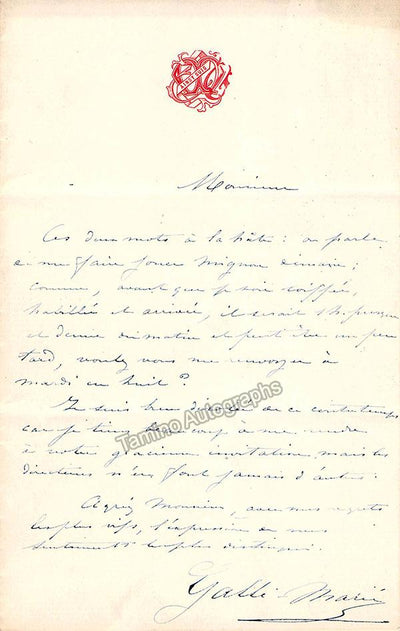 Monsieur
Ces deux mots à la hâte : on parle
de me faire jouer Mignon demain ;
comme, avant que je sois coiffée,
habillée et arrivée, il serait 1h
et demie du matin et peut être un peu
tard, voulez vous me renvoyer à
mardi en huit ?
Je suis bien de ce contretemps
car je tiens beaucoup à me rendre
à votre gracieuse invitation, mais les
directeurs n'en font jamais d'autres.
Agréez Monsieur, avec mes regrets
les plus vifs, l'expression de mes
sentiments les plus distingués.
Galli-Marié
Tamino Autographs